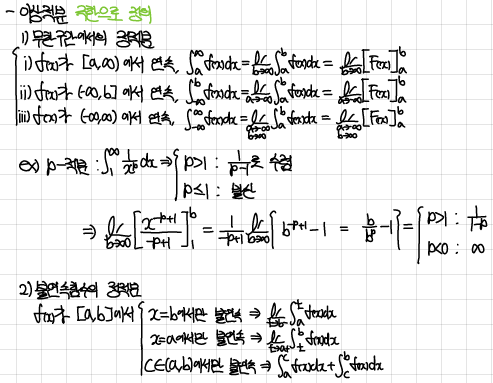 - 이상적분 극한으로 정의
1) 무한구간에서의 정적분
i) f(x)가 [a,∞) 에서 연속, ∫_a^∞ f(x)dx = lim_{b→∞} ∫_a^b f(x)dx = lim_{b→∞} [F(x)]_a^b
ii) f(x)가 (-∞,b] 에서 연속, ∫_{-∞}^b f(x)dx = lim_{a→-∞} ∫_a^b f(x)dx = lim_{a→-∞} [F(x)]_a^b
iii) f(x)가 (-∞,∞) 에서 연속, ∫_{-∞}^∞ f(x)dx = lim_{a→-∞ b→∞} ∫_a^b f(x)dx = lim_{a→-∞ b→∞} [F(x)]_a^b
ex) p-적분 : ∫_1^∞ 1/x^p dx ⇒ { p>1 : 1/(p-1)로 수렴
p≤1 : 발산
⇒ lim_{b→∞} [x^{-p+1}/(-p+1)]_1^b = 1/(-p+1) lim_{b→∞} { b^{-p+1} - 1 = b/b^p - 1 } = { p>1 : 1/(1-p)
p<0 : ∞
2) 불연속함수의 정적분
f(x)가 [a,b]에서 { x=b에서만 불연속 ⇒ lim_{t→b-} ∫_a^t f(x)dx
x=a에서만 불연속 ⇒ lim_{t→a+} ∫_t^b f(x)dx
C∈(a,b)에서만 불연속 ⇒ ∫_a^c f(x)dx + ∫_c^b f(x)dx